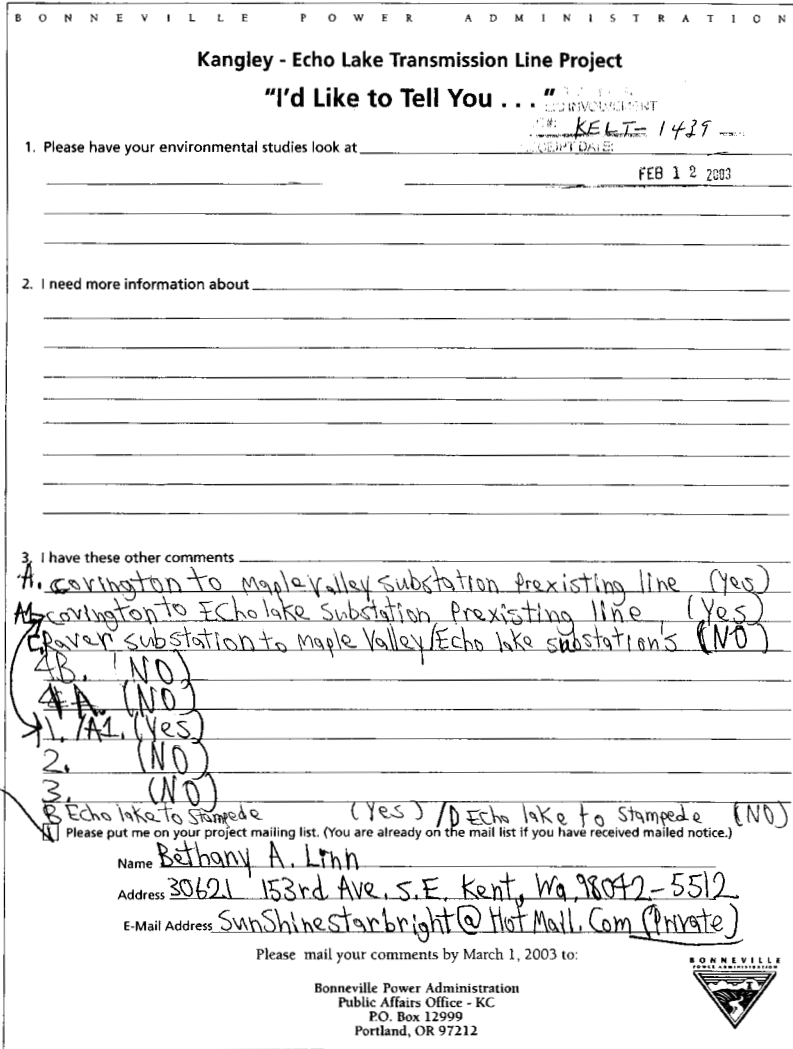 BONNEVILLE POWER ADMINISTRATION
Kangley - Echo Lake Transmission Line Project
"I'd Like to Tell You . . . "
INVOLVEMENT
KELT-1439
RECEIPT DATE:
1. Please have your environmental studies look at
FEB 12 2003
2. I need more information about
3. I have these other comments
A. covington to Maple Valley Substation Prexisting line (Yes)
A1 covington to Echo lake Substation Prexisting line, (Yes)
C Raver substation to Maple Valley/Echo lake substation's (NO)
4B. (NO)
4A. (NO)
1. /A1. (Yes)
2. (NO)
3. (NO)
B Echo lake to Stampede (Yes) /D Echo lake to Stampede (NO)
Please put me on your project mailing list. (You are already on the mail list if you have received mailed notice.)
Name Bethany A. Linn
Address 30621 153rd Ave. S.E. Kent, Wa, 98042-5512
E-Mail Address SunShinestarbright@HotMail.Com (Private)
Please mail your comments by March 1, 2003 to:
BONNEVILLE
POWER ADMINISTRATION
Bonneville Power Administration
Public Affairs Office - KC
P.O. Box 12999
Portland, OR 97212